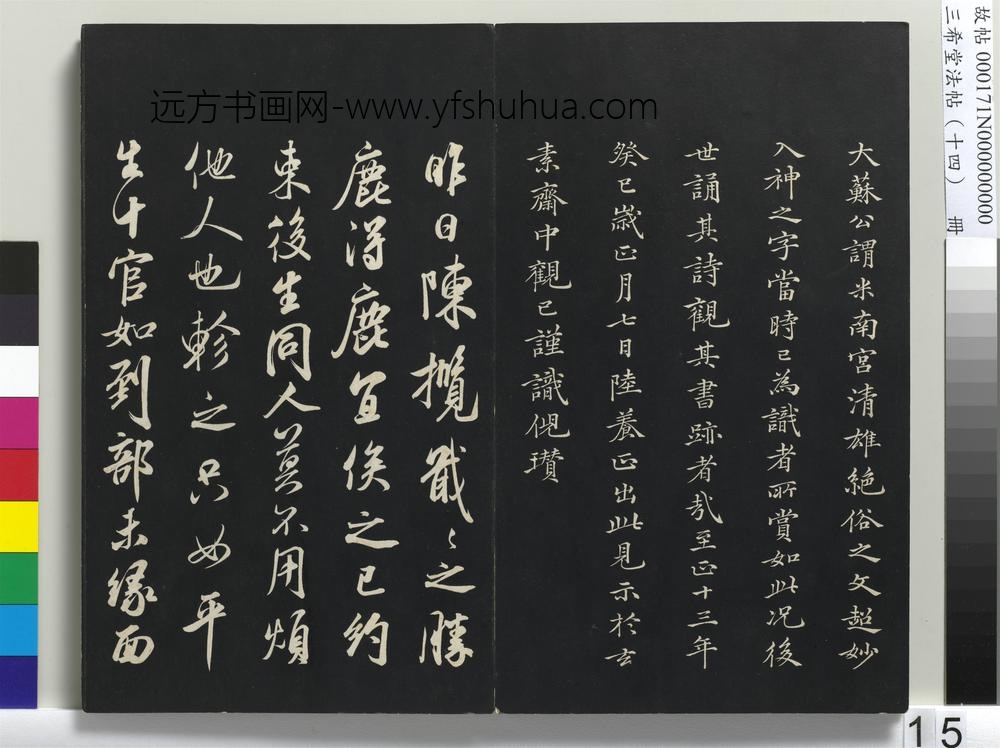 大蘇公謂米南宮清雄絕俗之文超妙
入神之字當時已為識者所賞如此况後
世誦其詩觀其書跡者哉至正十三年
癸巳歲正月七日陸養正出此見示於玄
素齋中觀已謹識倪瓚
昨日陳攬戢戢之勝
鹿得鹿宜俟之已約
束後生同人莫不用煩
他人也軫之只如平
生十官如到部未緣面
远方书画网-www.yfshuhua.com
故帖 000171N000000000
三希堂法帖（十四） 冊
15